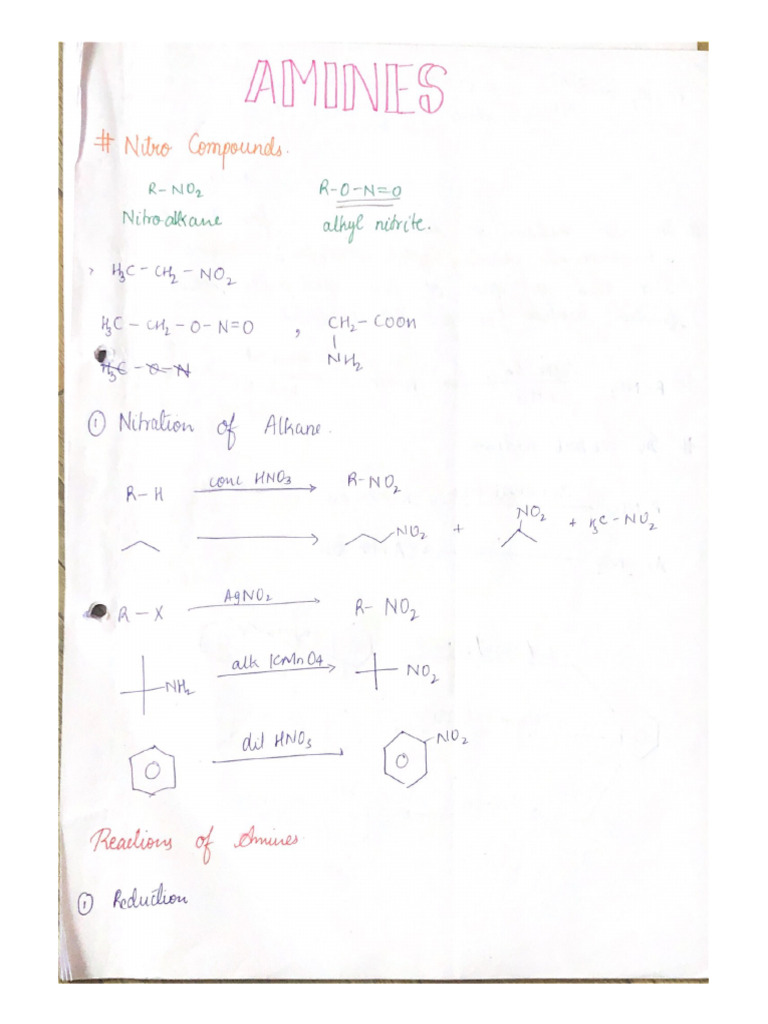 AMINES
# Nitro Compounds.
R-NO₂ R-O-N=O
Nitroalkane alkyl nitrite.
H₃C-CH₂-NO₂
H₃C-CH₂-O-N=O , CH₂-COOH
NH₂
H₃C-O-N
① Nitration of Alkane.
R-H conc HNO₃ R-NO₂
NO₂ + NO₂ + H₃C-NO₂
R-X AgNO₂ R-NO₂
NH₂ alk KMnO4 NO₂
dil HNO₃ NO₂
Reactions of Amines
① Reduction